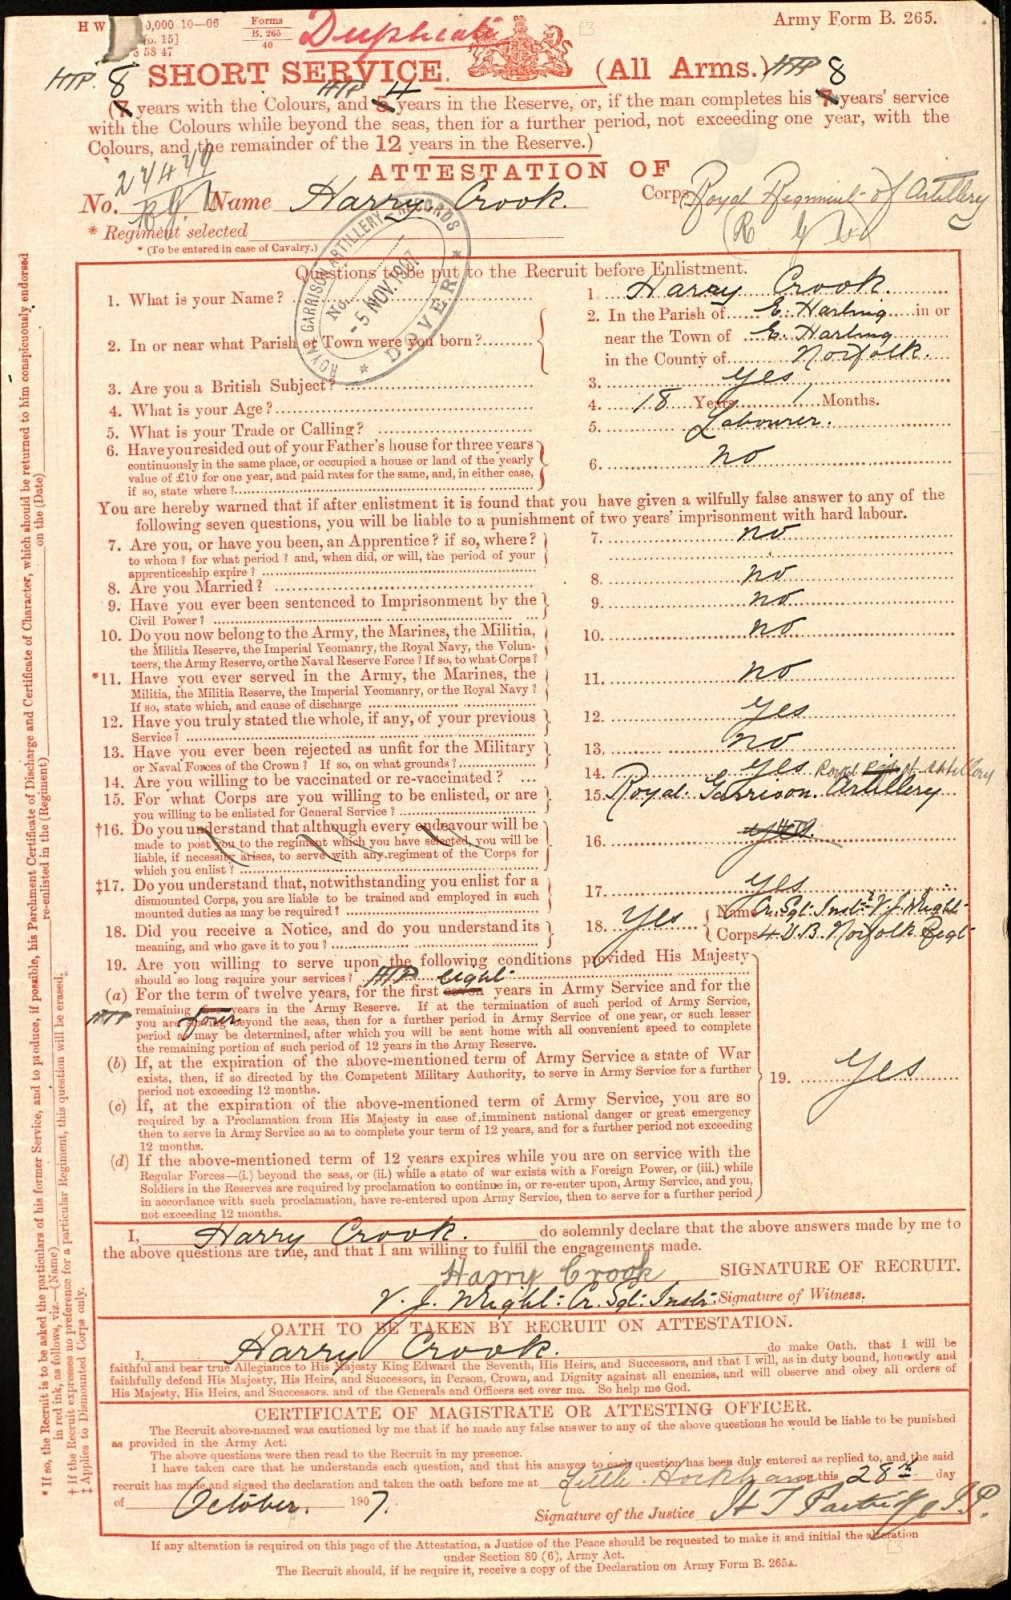 Army Form B. 265.
Forms
B. 265
40
Duplicate
HTP. 8 SHORT SERVICE. (All Arms.) HTP 8
HTP 4
(7 years with the Colours, and 5 years in the Reserve, or, if the man completes his 7 years' service
with the Colours while beyond the seas, then for a further period, not exceeding one year, with the
Colours, and the remainder of the 12 years in the Reserve.)
ATTESTATION OF
No. Name Harry Crook. Corps Royal Regiment of Artillery
* Regiment selected
* (To be entered in case of Cavalry.)
ROYAL GARRISON ARTILLERY RECORDS
No.
-5 NOV. 1907
* DOVER *
Questions to be put to the Recruit before Enlistment.
1. What is your Name? 1 Harry Crook.
2. In or near what Parish or Town were you born? 2. In the Parish of E. Harling in or
near the Town of E. Harling
in the County of Norfolk.
3. Are you a British Subject? 3. Yes
4. What is your Age? 4. 18 Years 1 Months.
5. What is your Trade or Calling? 5. Labourer.
6. Have you resided out of your Father's house for three years
continuously in the same place, or occupied a house or land of the yearly
value of £10 for one year, and paid rates for the same, and, in either case,
if so, state where? 6. no
You are hereby warned that if after enlistment it is found that you have given a wilfully false answer to any of the
following seven questions, you will be liable to a punishment of two years' imprisonment with hard labour.
7. Are you, or have you been, an Apprentice? if so, where? 7. no
to whom? for what period? and, when did, or will, the period of your
apprenticeship expire?
8. Are you Married? 8. no
9. Have you ever been sentenced to Imprisonment by the
Civil Power? 9. no
10. Do you now belong to the Army, the Marines, the Militia,
the Militia Reserve, the Imperial Yeomanry, the Royal Navy, the Volun-
teers, the Army Reserve, or the Naval Reserve Force? If so, to what Corps? 10. no
*11. Have you ever served in the Army, the Marines, the
Militia, the Militia Reserve, the Imperial Yeomanry, or the Royal Navy?
If so, state which, and cause of discharge 11. no
12. Have you truly stated the whole, if any, of your previous
Service? 12. Yes
13. Have you ever been rejected as unfit for the Military
or Naval Forces of the Crown? If so, on what grounds? 13. no
14. Are you willing to be vaccinated or re-vaccinated? 14. Yes
15. For what Corps are you willing to be enlisted, or are
you willing to be enlisted for General Service? 15. Royal Garrison Artillery
†16. Do you understand that although every endeavour will be
made to post you to the regiment which you have selected, you will be
liable, if necessity arises, to serve with any regiment of the Corps for
which you enlist? 16.
‡17. Do you understand that, notwithstanding you enlist for a
dismounted Corps, you are liable to be trained and employed in such
mounted duties as may be required? 17. Yes
18. Did you receive a Notice, and do you understand its
meaning, and who gave it to you? 18. Yes Name Cr. Sgt. Instr V. J. Wright
Corps 4 V.B. Norfolk Regt
19. Are you willing to serve upon the following conditions provided His Majesty
should so long require your services? HTP eight
(a) For the term of twelve years, for the first seven years in Army Service and for the
remaining years in the Army Reserve. If at the termination of such period of Army Service,
HTP four
you are serving beyond the seas, then for a further period in Army Service of one year, or such lesser
period as may be determined, after which you will be sent home with all convenient speed to complete
the remaining portion of such period of 12 years in the Army Reserve.
(b) If, at the expiration of the above-mentioned term of Army Service a state of War
exists, then, if so directed by the Competent Military Authority, to serve in Army Service for a further
period not exceeding 12 months.
19. Yes
(c) If, at the expiration of the above-mentioned term of Army Service, you are so
required by a Proclamation from His Majesty in case of imminent national danger or great emergency
then to serve in Army Service so as to complete your term of 12 years, and for a further period not exceeding
12 months.
(d) If the above-mentioned term of 12 years expires while you are on service with the
Regular Forces—(i.) beyond the seas, or (ii.) while a state of war exists with a Foreign Power, or (iii.) while
Soldiers in the Reserves are required by proclamation to continue in, or re-enter upon, Army Service, and you,
in accordance with such proclamation, have re-entered upon Army Service, then to serve for a further period
not exceeding 12 months.
I, Harry Crook. do solemnly declare that the above answers made by me to
the above questions are true, and that I am willing to fulfil the engagements made.
Harry Crook SIGNATURE OF RECRUIT.
V. J. Wright Cr. Sgt. Instr. Signature of Witness.
OATH TO BE TAKEN BY RECRUIT ON ATTESTATION.
I, Harry Crook. do make Oath, that I will be
faithful and bear true Allegiance to His Majesty King Edward the Seventh, His Heirs, and Successors, and that I will, as in duty bound, honestly and
faithfully defend His Majesty, His Heirs, and Successors, in Person, Crown, and Dignity against all enemies, and will observe and obey all orders of
His Majesty, His Heirs, and Successors, and of the Generals and Officers set over me. So help me God.
CERTIFICATE OF MAGISTRATE OR ATTESTING OFFICER.
The Recruit above-named was cautioned by me that if he made any false answer to any of the above questions he would be liable to be punished
as provided in the Army Act.
The above questions were then read to the Recruit in my presence.
I have taken care that he understands each question, and that his answer to each question has been duly entered as replied to, and the said
recruit has made and signed the declaration and taken the oath before me at Little Hockham, this 28th day
of October. 1907.
Signature of the Justice H T Partridge J.P.
If any alteration is required on this page of the Attestation, a Justice of the Peace should be requested to make it and initial the alteration
under Section 80 (6), Army Act.
The Recruit should, if he require it, receive a copy of the Declaration on Army Form B. 265A.
* If so, the Recruit is to be asked the particulars of his former Service, and to produce, if possible, his Parchment Certificate of Discharge and Certificate of Character, which should be returned to him conspicuously endorsed
in red ink, as follows, viz.—(Name) re-enlisted in the (Regiment) on the (Date)
† If the Recruit expresses no preference for a particular Regiment, this question will be erased.
‡ Applies to Dismounted Corps only.